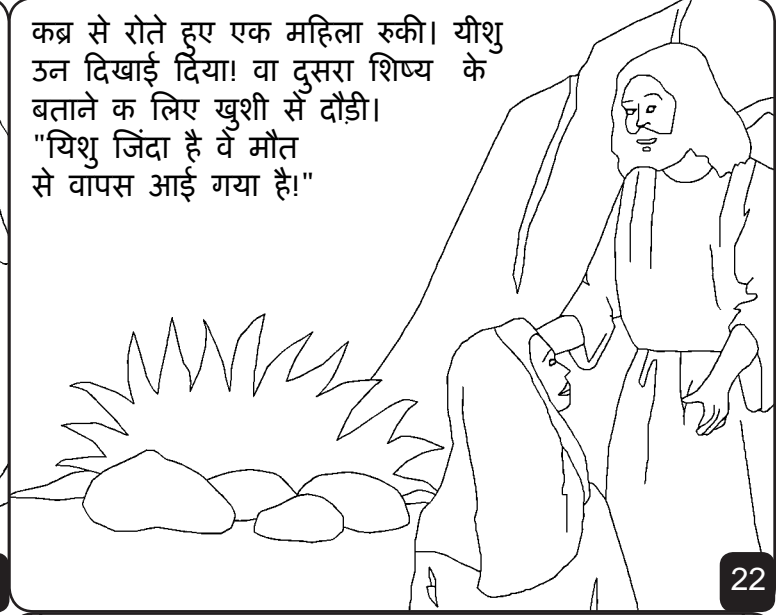 कब्र से रोते हुए एक महिला रुकी। यीशु
उन दिखाई दिया! वा दुसरा शिष्य  के
बताने क लिए खुशी से दौड़ी।
"यिशु जिंदा है वे मौत
से वापस आई गया है!"
22